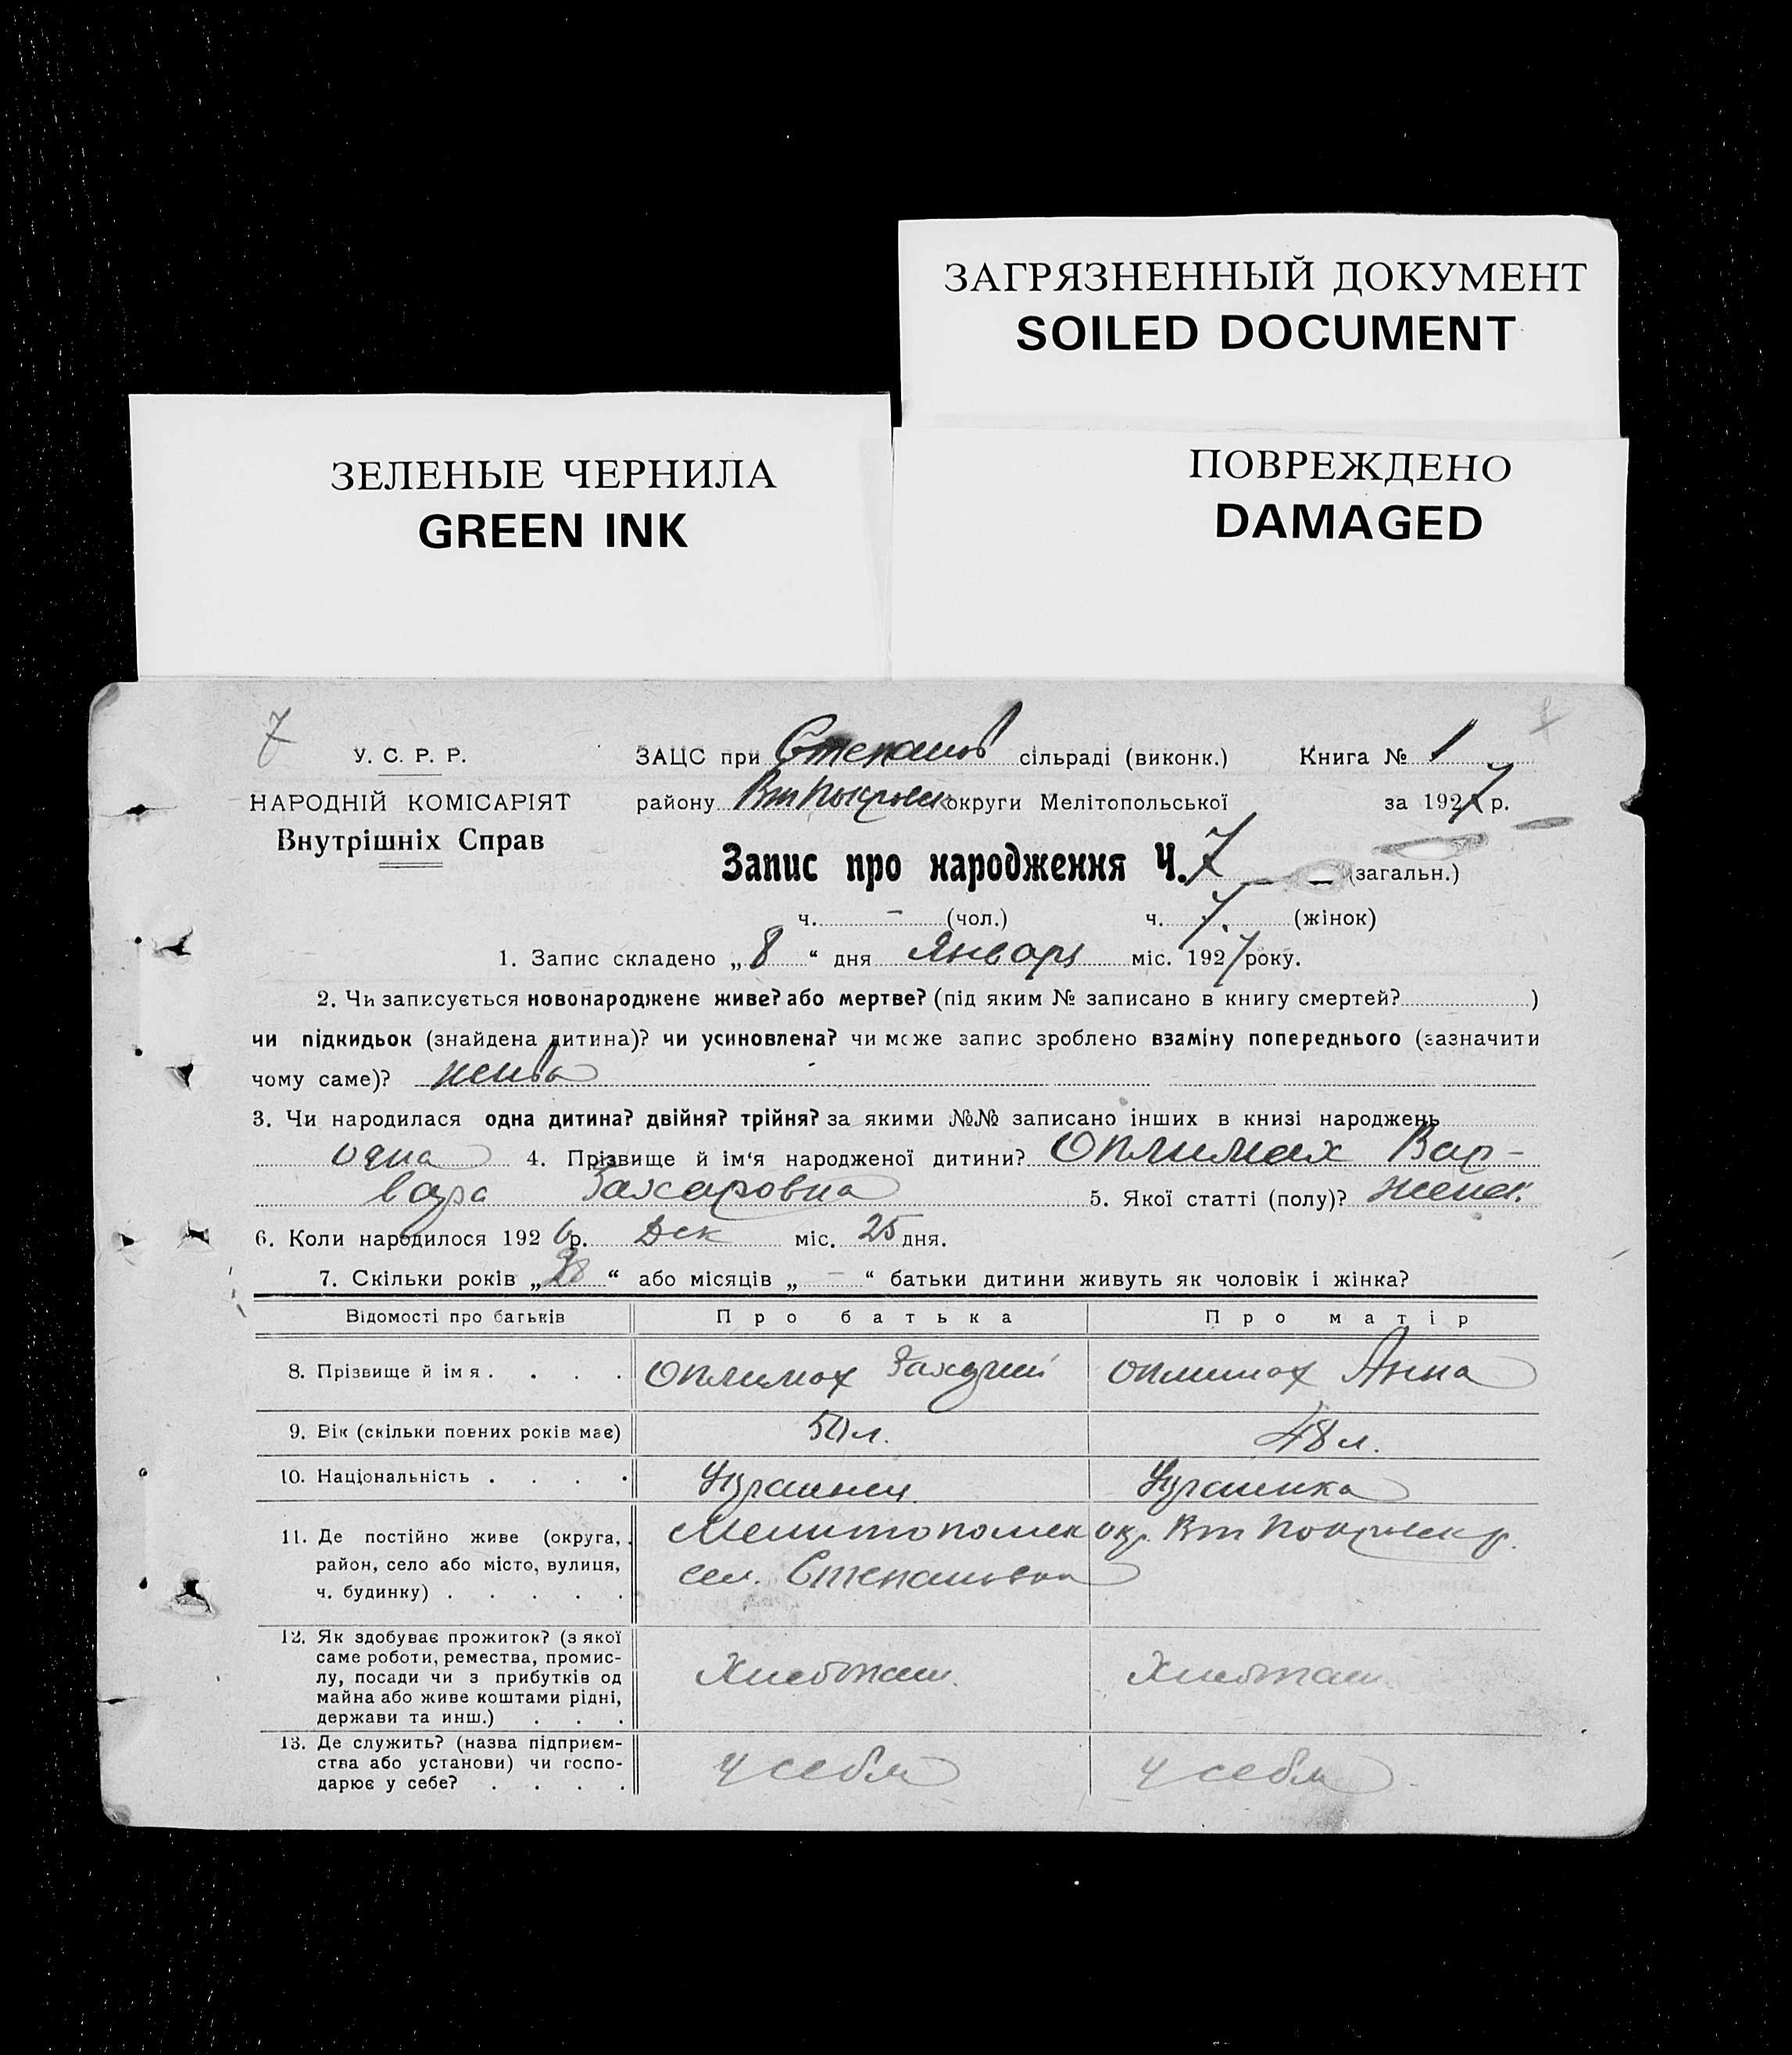 ЗАГРЯЗНЕННЫЙ ДОКУМЕНТ
SOILED DOCUMENT
ЗЕЛЕНЫЕ ЧЕРНИЛА
GREEN INK
ПОВРЕЖДЕНО
DAMAGED
7
У. С. Р. Р.
НАРОДНІЙ КОМІСАРІЯТ
Внутрішніх Справ
ЗАЦС при Степанов сільраді (виконк.) Книга № 1
району Вт Покровск округи Мелітопольської за 1927 р.
Запис про народження Ч. 7 — (загальн.)
ч. — (чол.) ч. 7. (жінок)
1. Запис складено „8“ дня Января міс. 1927 року.
2. Чи записується новонароджене живе? або мертве? (під яким № записано в книгу смертей? )
чи підкидьок (знайдена дитина)? чи усиновлена? чи може запис зроблено взаміну попереднього (зазначити
чому саме)? жива
3. Чи народилася одна дитина? двійня? трійня? за якими №№ записано інших в книзі народжень
одна 4. Прізвище й ім‘я народженої дитини? Оплимах Вар-
вара Захаровна 5. Якої статті (полу)? женск.
6. Коли народилося 1926 р. Дек міс. 25 дня.
7. Скільки років „28“ або місяців „—“ батьки дитини живуть як чоловік і жінка?
Відомості про батьків Про батька Про матір
8. Прізвище й імя . . . . Оплимах Захарий Оплимах Анна
9. Вік (скільки повних років має) 50 л. 48 л.
10. Національність . . . . Украинец Украинка
11. Де постійно живе (округа, Мелитопольск окр. Вт Покровск р.
район, село або місто, вулиця, сел. Степановка
ч. будинку) . . . . .
12. Як здобуває прожиток? (з якої
саме роботи, ремества, промис-
лу, посади чи з прибутків од Хлебопаш. Хлебопаш.
майна або живе коштами рідні,
держави та инш.) . . .
13. Де служить? (назва підприєм-
ства або установи) чи госпо- у себя у себя
дарює у себе? . . . .